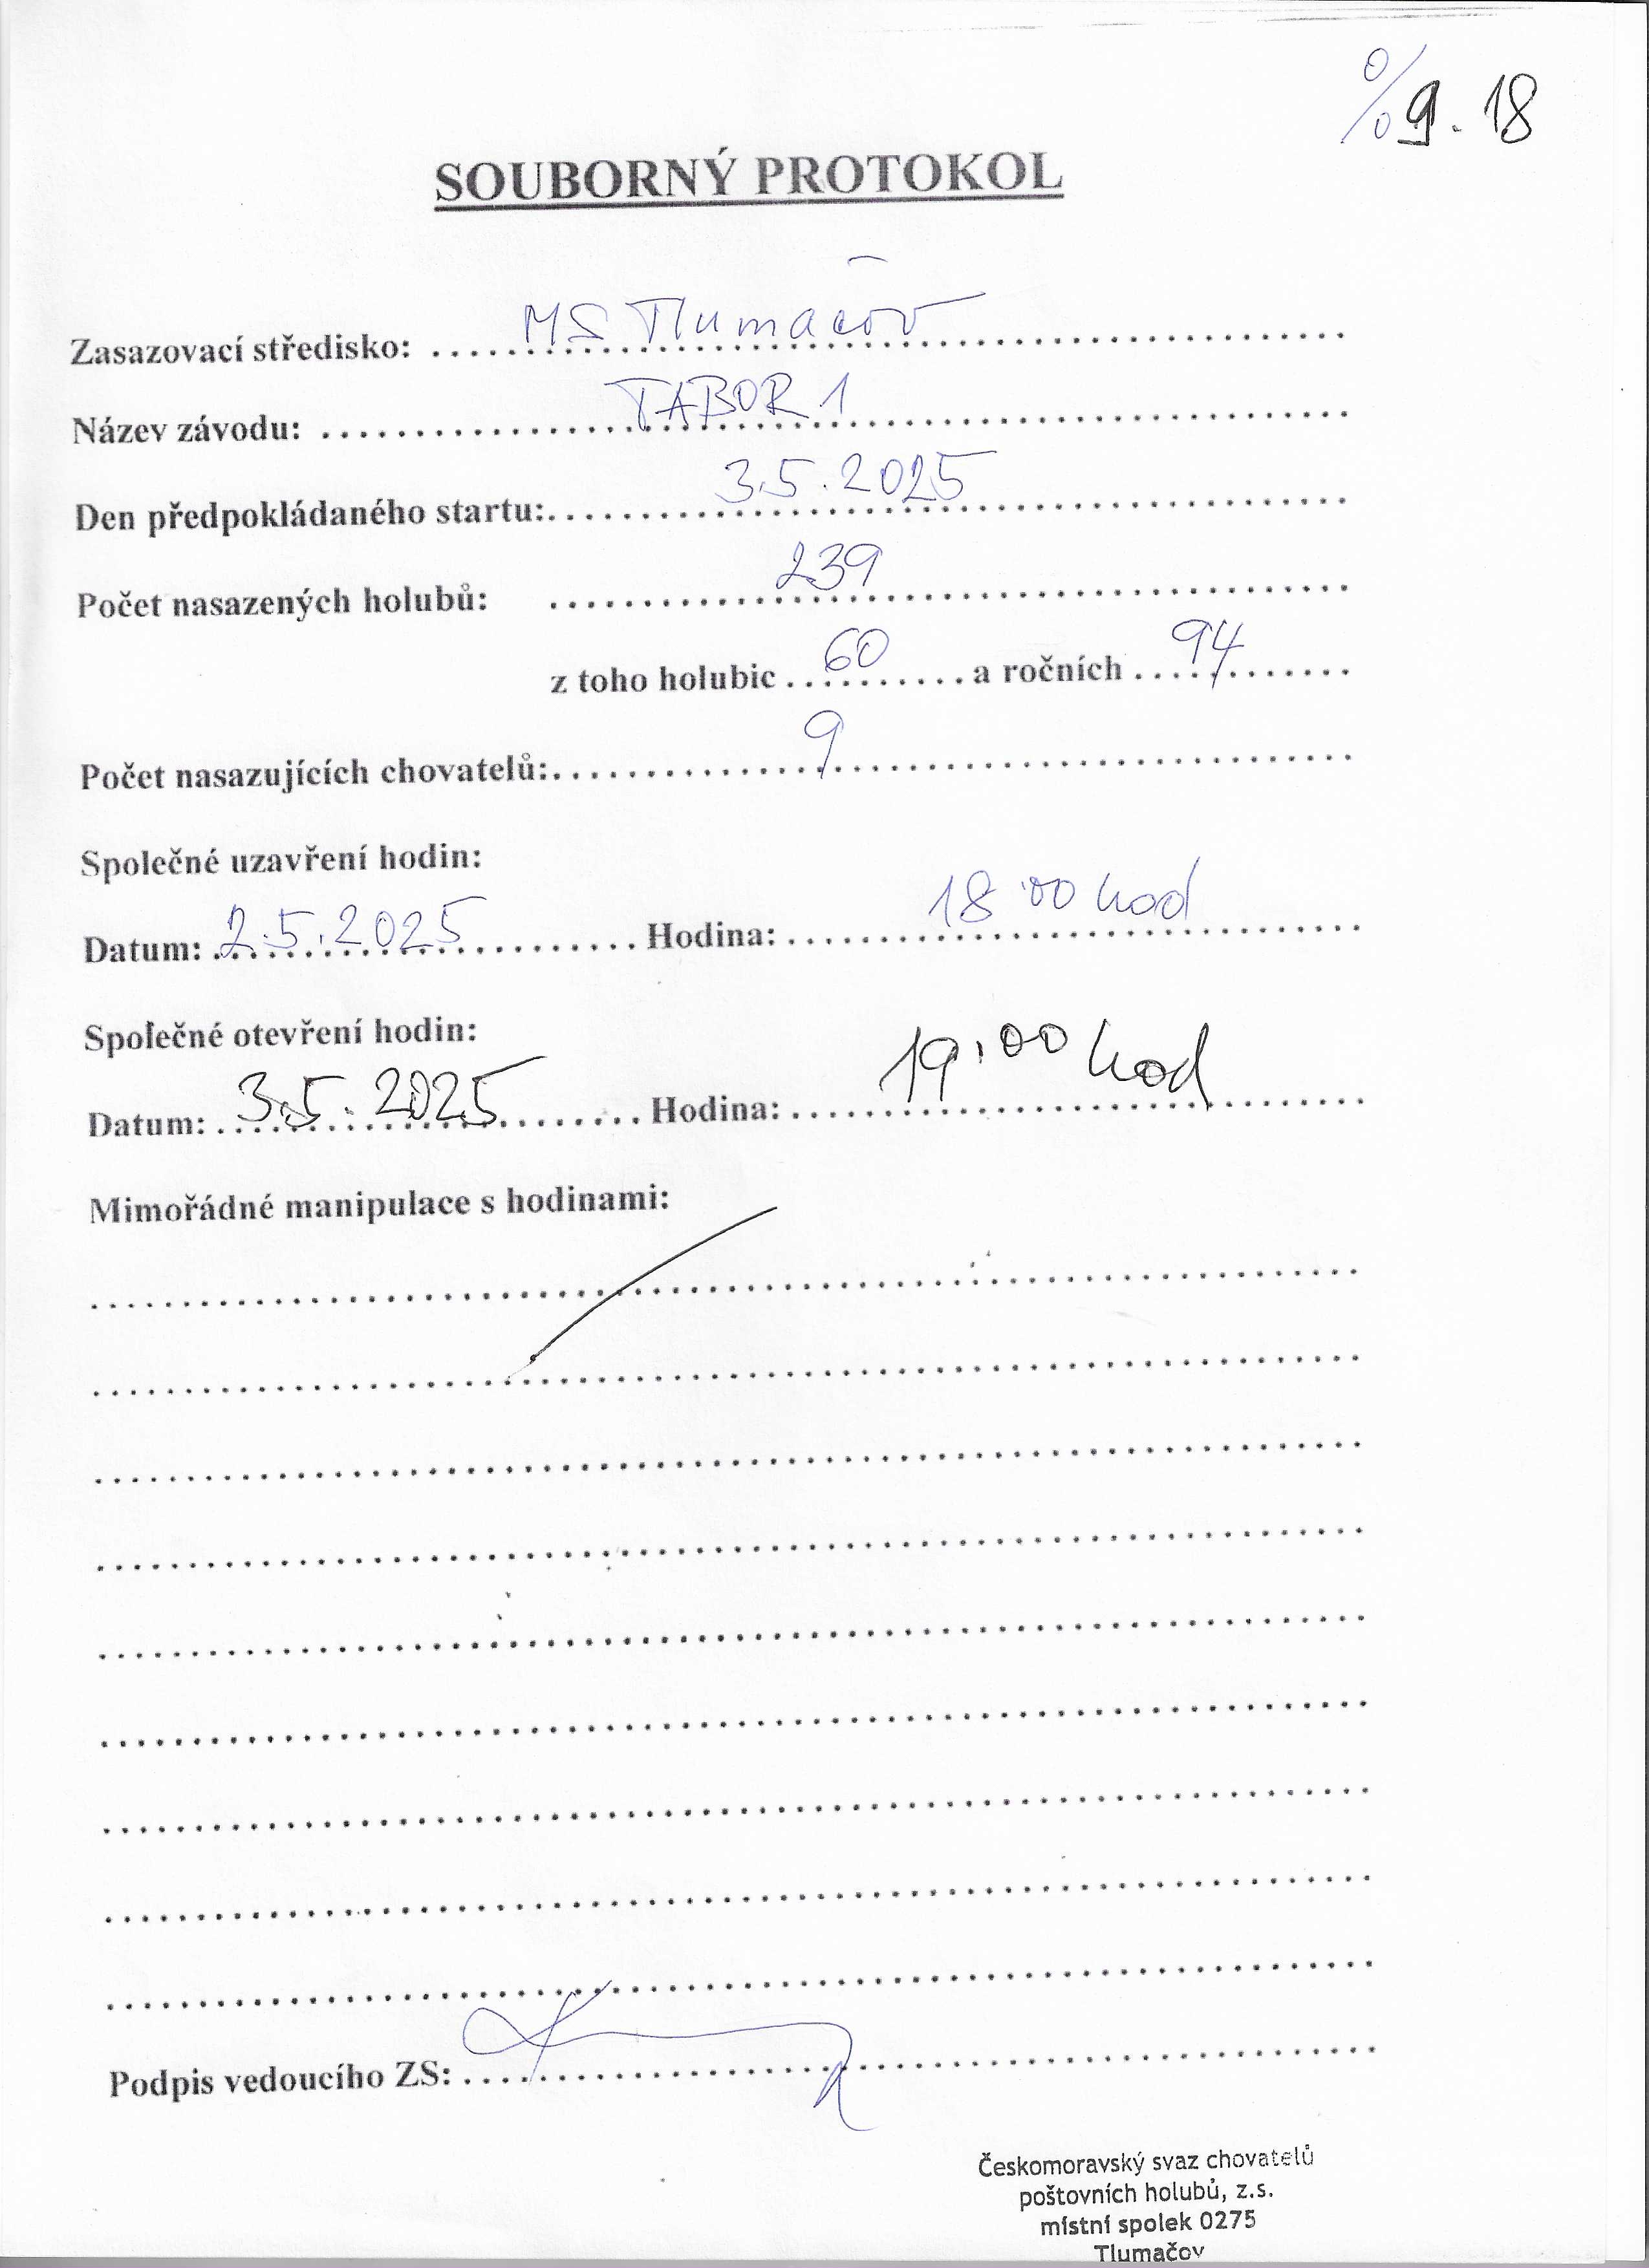 % 9. 18
SOUBORNÝ PROTOKOL
Zasazovací středisko: MS Tlumačov
Název závodu: TABOR 1
Den předpokládaného startu: 3.5.2025
Počet nasazených holubů: 239
z toho holubic 60 a ročních 94
Počet nasazujících chovatelů: 9
Společné uzavření hodin:
Datum: 2.5.2025 Hodina: 18:00 hod
Společné otevření hodin:
Datum: 3.5.2025 Hodina: 19:00 hod
Mimořádné manipulace s hodinami:
Podpis vedoucího ZS:
Českomoravský svaz chovatelů
poštovních holubů, z.s.
místní spolek 0275
Tlumačov